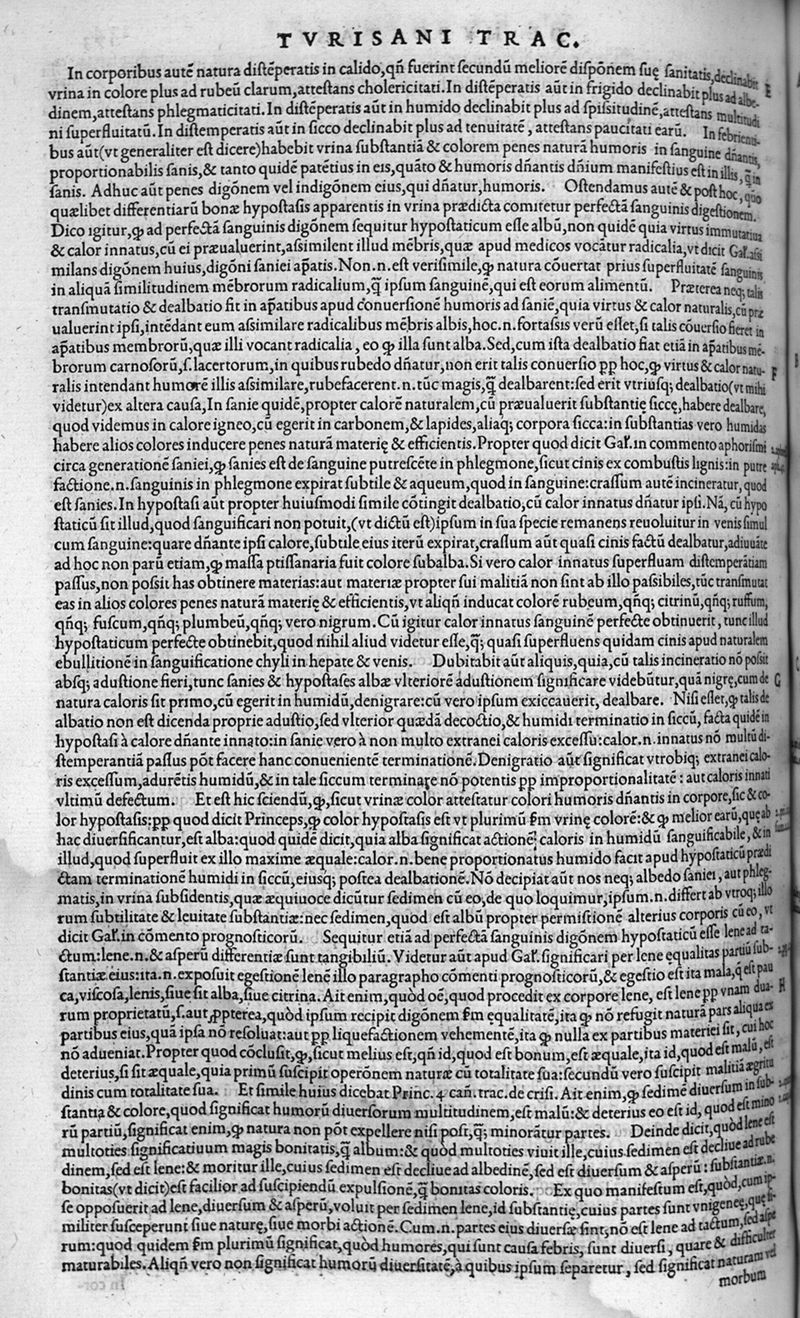 TVRISANI TRAC.
In corporibus autē natura distēperatis in calido, qñ fuerint secundū meliorē dispōnem suę sanitatis, declinabit
vrina in colore plus ad rubeū clarum, attestans cholericitati. In distēperatis aūt in frigido declinabit plus ad albe-
dinem, attestans phlegmaticitati. In distēperatis aūt in humido declinabit plus ad spissitudinē, attestans multitudi
ni superfluitatū. In distemperatis aūt in sicco declinabit plus ad tenuitatē, attestans paucitati earū. In febrienti-
bus aūt (vt generaliter est dicere) habebit vrina substantiā & colorem penes naturā humoris in sanguine dñantis,
proportionabilis sanis, & tanto quidē patētius in eis, quāto & humoris dñantis dñium manifestius est in illis, q̄ in
sanis. Adhuc aūt penes digōnem vel indigōnem eius, qui dñatur, humoris. Ostendamus autē & post hoc, quo
quælibet differentiarū bonæ hypostasis apparentis in vrina prædicta comitetur perfectā sanguinis digestionem.
Dico igitur, ꝙ ad perfectā sanguinis digōnem sequitur hypostaticum esse albū, non quidē quia virtus immutatiua
& calor innatus, cū ei præualuerint, assimilent illud mēbris, quæ apud medicos vocātur radicalia, vt dicit Gal. assi
milans digōnem huius, digōni saniei ap̄atis. Non. n. est verisimile, ꝙ natura cōuertat prius superfluitatē sanguinis
in aliquā similitudinem mēbrorum radicalium, q̄ ipsum sanguinē, qui est eorum alimentū. Præterea neq; talis
transmutatio & dealbatio fit in ap̄atibus apud conuersionē humoris ad saniē, quia virtus & calor naturalis, cū præ
ualuerint ipsi, intēdant eum assimilare radicalibus mēbris albis, hoc. n. fortassis verū esset, si talis cōuersio fieret in
ap̄atibus membrorū, quæ illi vocant radicalia, eo ꝙ illa sunt alba. Sed, cum ista dealbatio fiat etiā in ap̄atibus mē-
brorum carnosorū, s. lacertorum, in quibus rubedo dñatur, non erit talis conuersio pp hoc, ꝙ virtus & calor natu-
ralis intendant humorē illis assimilare, rubefacerent. n. tūc magis, q̄ dealbarent: sed erit vtriusq; dealbatio (vt mihi
videtur) ex altera causa, In sanie quidē, propter calorē naturalem, cū præualuerit substantię siccę, habere dealbare,
quod videmus in calore igneo, cū egerit in carbonem, & lapides, aliaq; corpora sicca: in substantias vero humidas
habere alios colores inducere penes naturā materię & efficientis. Propter quod dicit Gal. in commento aphorismi
circa generationē saniei, ꝙ sanies est de sanguine putrescēte in phlegmone, sicut cinis ex combustis lignis: in putre
factione. n. sanguinis in phlegmone expirat subtile & aqueum, quod in sanguine: crassum autē incineratur, quod
est sanies. In hypostasi aūt propter huiusmodi simile cōtingit dealbatio, cū calor innatus dñatur ipsi. Nā, cū hypo
staticū sit illud, quod sanguificari non potuit, (vt dictū est) ipsum in sua specie remanens reuoluitur in venis simul
cum sanguine: quare dñante ipsi calore, subtile eius iterū expirat, crassum aūt quasi cinis factū dealbatur, adiuuāte
ad hoc non parū etiam, ꝙ massa ptissanaria fuit colore subalba. Si vero calor innatus superfluam distemperātiam
passus, non possit has obtinere materias: aut materiæ propter sui malitiā non sint ab illo passibiles, tūc transmutat
eas in alios colores penes naturā materię & efficientis, vt aliqñ inducat colorē rubeum, qñq; citrinū, qñq; ruffum,
qñq; fuscum, qñq; plumbeū, qñq; vero nigrum. Cū igitur calor innatus sanguinē perfecte obtinuerit, tunc illud
hypostaticum perfecte obtinebit, quod nihil aliud videtur esse, q̄; quasi superfluens quidam cinis apud naturalem
ebullitionē in sanguificatione chyli in hepate & venis. Dubitabit aūt aliquis, quia, cū talis incineratio nō possit
absq; adustione fieri, tunc sanies & hypostases albæ vlteriorē adustionem significare videbūtur, quā nigrę, cum de
natura caloris sit primo, cū egerit in humidū, denigrare: cū vero ipsum exiccauerit, dealbare. Nisi esset, ꝙ talis de
albatio non est dicenda proprie adustio, sed vlterior quædā decoctio, & humidi terminatio in siccū, facta quidē in
hypostasi à calore dñante innato: in sanie vero à non multo extranei caloris excessu: calor. n. innatus nō multū di-
stemperantiā passus pōt facere hanc conuenientē terminationē. Denigratio aūt significat vtrobiq; extranei calo-
ris excessum, adurētis humidū, & in tale siccum terminare nō potentis pp improportionalitatē: aut caloris innati
vltimū defectum. Et est hic sciendū, ꝙ, sicut vrinæ color attestatur colori humoris dñantis in corpore, sic & co-
lor hypostasis: pp quod dicit Princeps, ꝙ color hypostasis est vt plurimū ẜm vrinę colorē: & ꝙ melior earū, quę ab
hac diuersificantur, est alba: quod quidē dicit, quia alba significat actionē caloris in humidū sanguificabile, & in
illud, quod superfluit ex illo maxime æquale: calor. n. bene proportionatus humido facit apud hypostaticū prædi
ctam terminationē humidi in siccū, eiusq; postea dealbationē. Nō decipiat aūt nos neq; albedo saniei, aut phleg-
matis, in vrina subsidentis, quæ æquiuoce dicūtur sedimen cū eo, de quo loquimur, ipsum. n. differt ab vtroq; illo
rum subtilitate & leuitate substantiæ: nec sedimen, quod est albū propter permistionē alterius corporis cū eo, vt
dicit Gal. in cōmento prognosticorū. Sequitur etiā ad perfectā sanguinis digōnem hypostaticū esse lene ad ta-
ctum: lene. n. & asperū differentiæ sunt tangibiliū. Videtur aūt apud Gal. significari per lene equalitas partiū sub-
stantiæ eius: ita. n. exposuit egestionē lenē illo paragrapho cōmenti prognosticorū, & egestio est ita mala, q̄ est pau
ca, viscosa, lenis, siue sit alba, siue citrina. Ait enim, quòd oē, quod procedit ex corpore lene, est lene pp vnam dua-
rum proprietatū, s. aut ꝓpterea, quòd ipsum recipit digōnem ẜm equalitatē, ita ꝙ nō refugit naturā pars aliqua ex
partibus eius, quā ipsa nō resoluat: aut pp liquefactionem vehementē, ita ꝙ nulla ex partibus materiei sit, cui hoc
nō adueniat. Propter quod cōclusit, ꝙ, sicut melius est, qñ id, quod est bonum, est æquale, ita id, quod est malū, est
deterius, si sit æquale, quia primū suscipit operōnem naturæ cū totalitate sua: secundū vero suscipit malitiā ægritu
dinis cum totalitate sua. Et simile huius dicebat Princ. 4 can. trac. de crisi. Ait enim, ꝙ sedimē diuersum in sub-
stantia & colore, quod significat humorū diuersorum multitudinem, est malū: & deterius eo est id, quod est mino
rū partiū, significat enim, ꝙ natura non pōt expellere nisi post, q̄; minorātur partes. Deinde dicit, quòd lene est
multoties significatiuum magis bonitatis, q̄ album: & quòd multoties viuit ille, cuius sedimen est decliue ad rube
dinem, sed est lene: & moritur ille, cuius sedimen est decliue ad albedinē, sed est diuersum & asperū: substantiæ. n.
bonitas (vt dicit) est facilior ad suscipiendū expulsionē, q̄ bonitas coloris. Ex quo manifestum est, quòd, cum ip-
se opposuerit ad lene, diuersum & asperū, voluit per sedimen lene, id substantię, cuius partes sunt vnigeneę, que si-
militer susceperunt siue naturę, siue morbi actionē. Cum. n. partes eius diuersæ sint, nō est lene ad tactum, sed aspe
rum: quod quidem ẜm plurimū significat, quòd humores, qui sunt causa febris, sunt diuersi, quare & difficulter
maturabiles. Aliqñ vero non significat humorū diuersitatē, à quibus ipsum separetur, sed significat naturam vel
morbum